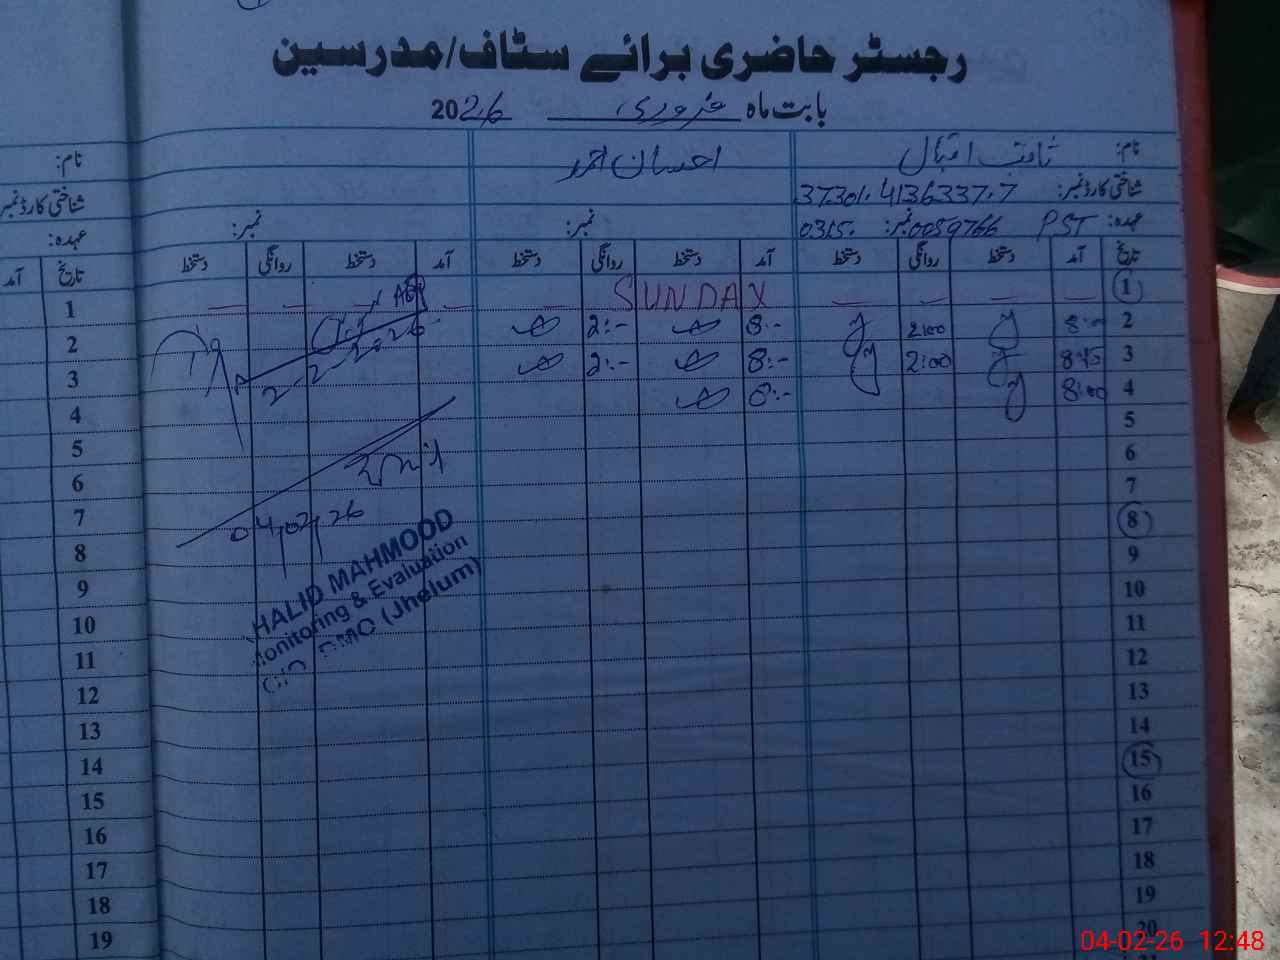 رجسٹر حاضری برائے سٹاف/مدرسین
بابت ماہ فروری 2026
نام: ثاقب اقبال احسان احمد نام:
شناختی کارڈ نمبر: 37301.4136337.7 شناختی کارڈ نمبر
عہدہ: PST نمبر: 0315.0059766 نمبر: نمبر: عہدہ:
تاریخ آمد دستخط روانگی دستخط آمد دستخط روانگی دستخط آمد دستخط روانگی دستخط تاریخ آمد
1 — — — — SUNDAY — — — — — 1
2 8:00 2:00 8:- 2:- 2-2-26 2
3 8:45 2:00 8:- 2:- 3
4 8:00 8:- 4
5 5
6 6
7 04/02/26 7
8 8
HALID MAHMOOD
onitoring & Evaluation
DMO (Jhelum)
9 9
10 10
11 11
12 12
13 13
14 14
15 15
16 16
17 17
18 18
19 19
20
04-02-26 12:48